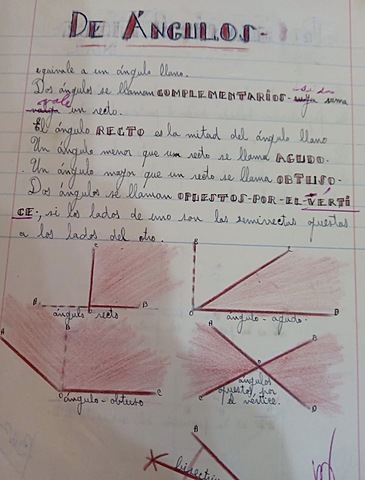 DE ÁNGULOS-
equivale a un ángulo llano.
Dos ángulos se llaman COMPLEMENTARIOS- si su suma
vale un recto.
El ángulo RECTO es la mitad del ángulo llano
Un ángulo menor que un recto se llama AGUDO.
Un ángulo mayor que un recto se llama OBTUSO-
Dos ángulos se llaman OPUESTOS-POR-EL-VÉRTI
CE-, si los lados de uno son las semirrectas opuestas
a los lados del otro.
C
A
B
ángulo recto
B
O
ángulo-agudo.
A
B
O
C
ángulo-obtuso
A
B
O
C
D
ángulos
opuestos por
el vértice.
A